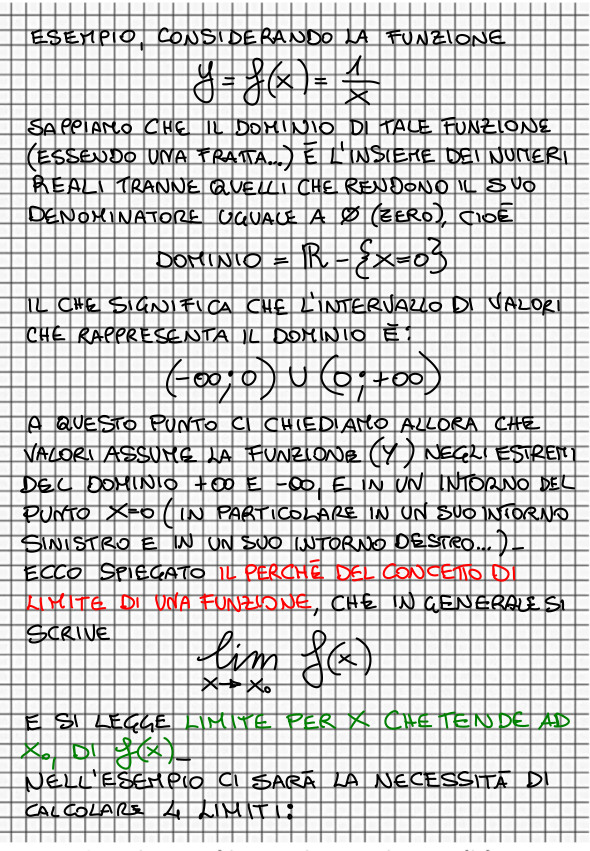 ESEMPIO, CONSIDERANDO LA FUNZIONE
y = f(x) = 1/x
SAPPIAMO CHE IL DOMINIO DI TALE FUNZIONE
(ESSENDO UNA FRATTA...) È L'INSIEME DEI NUMERI
REALI TRANNE QUELLI CHE RENDONO IL SUO
DENOMINATORE UGUALE A Ø (ZERO), CIOÈ
DOMINIO = ℝ - {x=0}
IL CHE SIGNIFICA CHE L'INTERVALLO DI VALORI
CHE RAPPRESENTA IL DOMINIO È:
(-∞; 0) ∪ (0; +∞)
A QUESTO PUNTO CI CHIEDIAMO ALLORA CHE
VALORI ASSUME LA FUNZIONE (Y) NEGLI ESTREMI
DEL DOMINIO +∞ E -∞, E IN UN INTORNO DEL
PUNTO X=0 (IN PARTICOLARE IN UN SUO INTORNO
SINISTRO E IN UN SUO INTORNO DESTRO...)_
ECCO SPIEGATO IL PERCHÉ DEL CONCETTO DI
LIMITE DI UNA FUNZIONE, CHE IN GENERALE SI
SCRIVE
lim f(x)
x→x₀
E SI LEGGE LIMITE PER X CHE TENDE AD
X₀, DI f(x)_
NELL'ESEMPIO CI SARÀ LA NECESSITÀ DI
CALCOLARE 4 LIMITI: